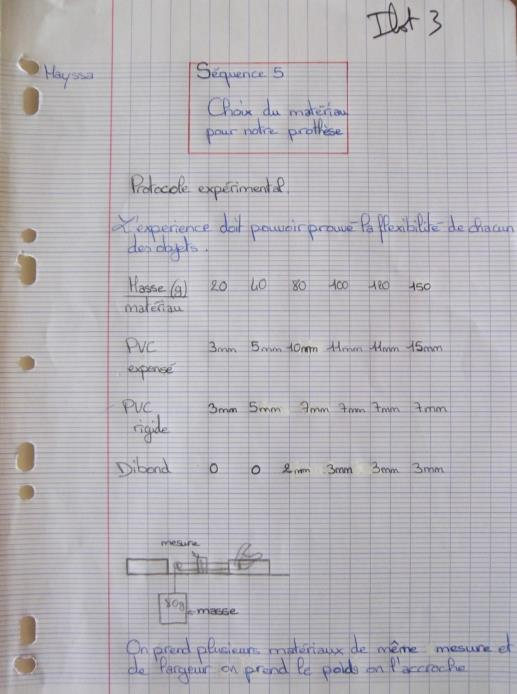 Ilot 3
Mayssa
Séquence 5
Choix du matériau
pour notre prothèse
Protocole expérimental.
L'expérience doit pouvoir prouvé la flexibilité de chacun
des objets.
Masse (g) 20 40 80 100 120 150
matériau
PVC 3mm 5mm 10mm 11mm 11mm 15mm
expensé
PVC 3mm 5mm 7mm 7mm 7mm 7mm
rigide
Dibond 0 0 2mm 3mm 3mm 3mm
mesure
80g masse
On prend plusieurs matériaux de même mesure et
de largeur on prend le poids on l'accroche